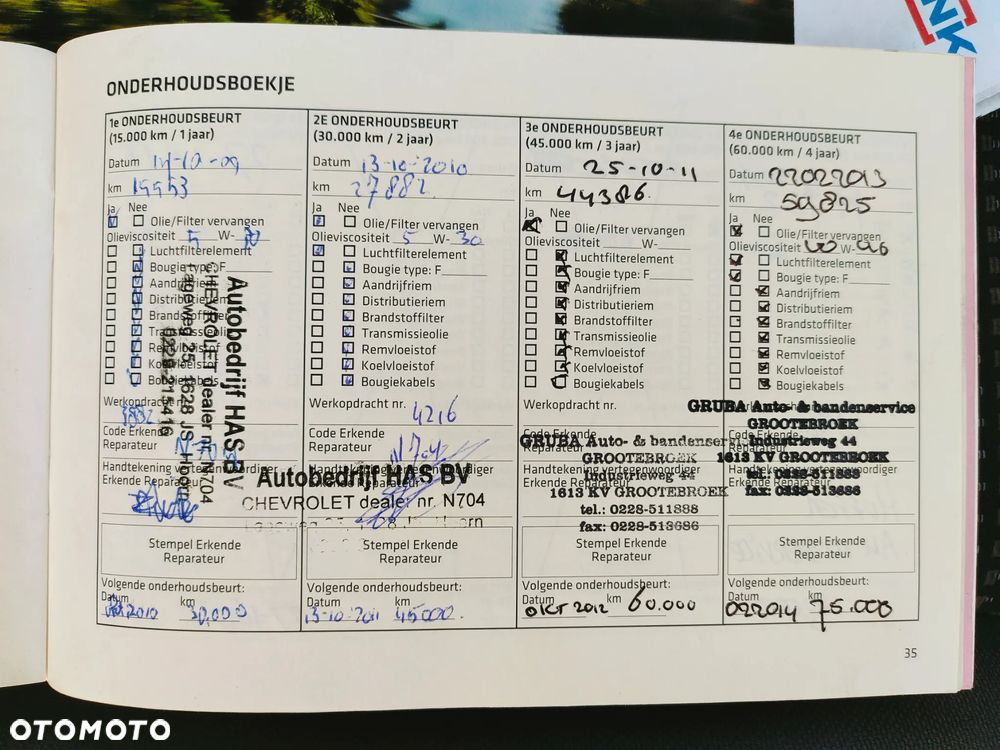 NK
ONDERHOUDSBOEKJE
1e ONDERHOUDSBEURT
(15.000 km / 1 jaar)
Datum 14-10-09
km 19953
Ja Nee
Olie/Filter vervangen
Olieviscositeit 5 W-
Luchtfilterelement
Bougie type: F
Aandrijfriem
Distributieriem
Brandstoffilter
Transmissieolie
Remvloeistof
Koelvloeistof
Bougiekabels
Werkopdracht
Code Erkende
Reparateur
Handtekening
Erkende
Autobedrijf HAS BV
CHEVROLET dealer nr. N704
Lageweg 25, 1628 JS Hoorn
0228-215416
Stempel Erkende
Reparateur
Volgende onderhoudsbeurt:
Datum km
2010 30.000
2E ONDERHOUDSBEURT
(30.000 km / 2 jaar)
Datum 13-10-2010
km 27882
Ja Nee
Olie/Filter vervangen
Olieviscositeit 5 W-30
Luchtfilterelement
Bougie type: F
Aandrijfriem
Distributieriem
Brandstoffilter
Transmissieolie
Remvloeistof
Koelvloeistof
Bougiekabels
Werkopdracht nr. 4216
Code Erkende
Reparateur
Autobedrijf HAS BV
CHEVROLET dealer nr. N704
Stempel Erkende
Reparateur
Volgende onderhoudsbeurt:
Datum km
13-10-2011 45000
3e ONDERHOUDSBEURT
(45.000 km / 3 jaar)
Datum 25-10-11
km 44386
Ja Nee
Olie/Filter vervangen
Olieviscositeit W-
Luchtfilterelement
Bougie type: F
Aandrijfriem
Distributieriem
Brandstoffilter
Transmissieolie
Remvloeistof
Koelvloeistof
Bougiekabels
Werkopdracht nr.
Code Erkende
Reparateur
Handtekening vertegenwoordiger
Erkende
GRUBA Auto- & bandenservice
GROOTEBROEK
Industrieweg 44
1613 KV GROOTEBROEK
tel.: 0228-511888
fax: 0228-513686
Stempel Erkende
Reparateur
Volgende onderhoudsbeurt:
Datum km
OKT 2012 60.000
4e ONDERHOUDSBEURT
(60.000 km / 4 jaar)
Datum 22022013
km 59825
Ja Nee
Olie/Filter vervangen
Olieviscositeit W-
Luchtfilterelement
Bougie type: F
Aandrijfriem
Distributieriem
Brandstoffilter
Transmissieolie
Remvloeistof
Koelvloeistof
Bougiekabels
GRUBA Auto- & bandenservice
GROOTEBROEK
Industrieweg 44
1613 KV GROOTEBROEK
tel.: 0228-511888
fax: 0228-513686
Code Erkende
Reparateur
Handtekening vertegenwoordiger
Erkende
Stempel Erkende
Reparateur
Volgende onderhoudsbeurt:
Datum km
022014 75.000
35
OTOMOTO